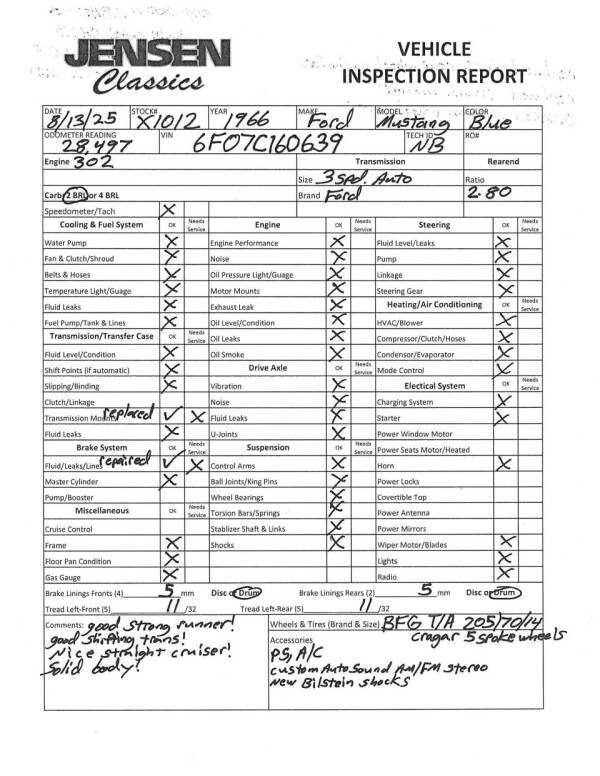 JENSEN
Classics
VEHICLE
INSPECTION REPORT
DATE 8/13/25 STOCK# X1012 YEAR 1966 MAKE Ford MODEL Mustang COLOR Blue
ODOMETER READING 28,497 VIN 6F07C160639 TECH ID NB RO#
Engine 302 Transmission Rearend
Size 3 Spd. Auto Ratio
Carb 2 BRL or 4 BRL Brand Ford 2.80
Speedometer/Tach X
Cooling & Fuel System OK Needs Service Engine OK Needs Service Steering OK Needs Service
Water Pump X Engine Performance X Fluid Level/Leaks X
Fan & Clutch/Shroud X Noise X Pump X
Belts & Hoses X Oil Pressure Light/Guage X Linkage X
Temperature Light/Guage X Motor Mounts X Steering Gear X
Fluid Leaks X Exhaust Leak X Heating/Air Conditioning OK Needs Service
Fuel Pump/Tank & Lines X Oil Level/Condition X HVAC/Blower X
Transmission/Transfer Case OK Needs Service Oil Leaks X Compressor/Clutch/Hoses X
Fluid Level/Condition X Oil Smoke X Condensor/Evaporator X
Shift Points (if automatic) X Drive Axle OK Needs Service Mode Control X
Slipping/Binding X Vibration X Electical System OK Needs Service
Clutch/Linkage Noise X Charging System X
Transmission Mounts replaced ✓ X Fluid Leaks X Starter X
Fluid Leaks X U-Joints X Power Window Motor
Brake System OK Needs Service Suspension OK Needs Service Power Seats Motor/Heated
Fluid/Leaks/Lines repaired ✓ X Control Arms X Horn X
Master Cylinder X Ball Joints/King Pins X Power Locks
Pump/Booster Wheel Bearings X Covertible Top
Miscellaneous OK Needs Service Torsion Bars/Springs X Power Antenna
Cruise Control Stablizer Shaft & Links X Power Mirrors
Frame X Shocks X Wiper Motor/Blades X
Floor Pan Condition X Lights X
Gas Gauge X Radio X
Brake Linings Fronts (4) 5 mm Disc or Drum Brake Linings Rears (2) 5 mm Disc or Drum
Tread Left-Front (5) 11 /32 Tread Left-Rear (5) 11 /32
Comments: good strong runner! Wheels & Tires (Brand & Size) BFG T/A 205/70/14
good shifting trans! Accessories Cragar 5 spoke wheels
Nice straight cruiser! PS, A/C
Solid body! custom AutoSound AM/FM stereo
New Bilstein shocks